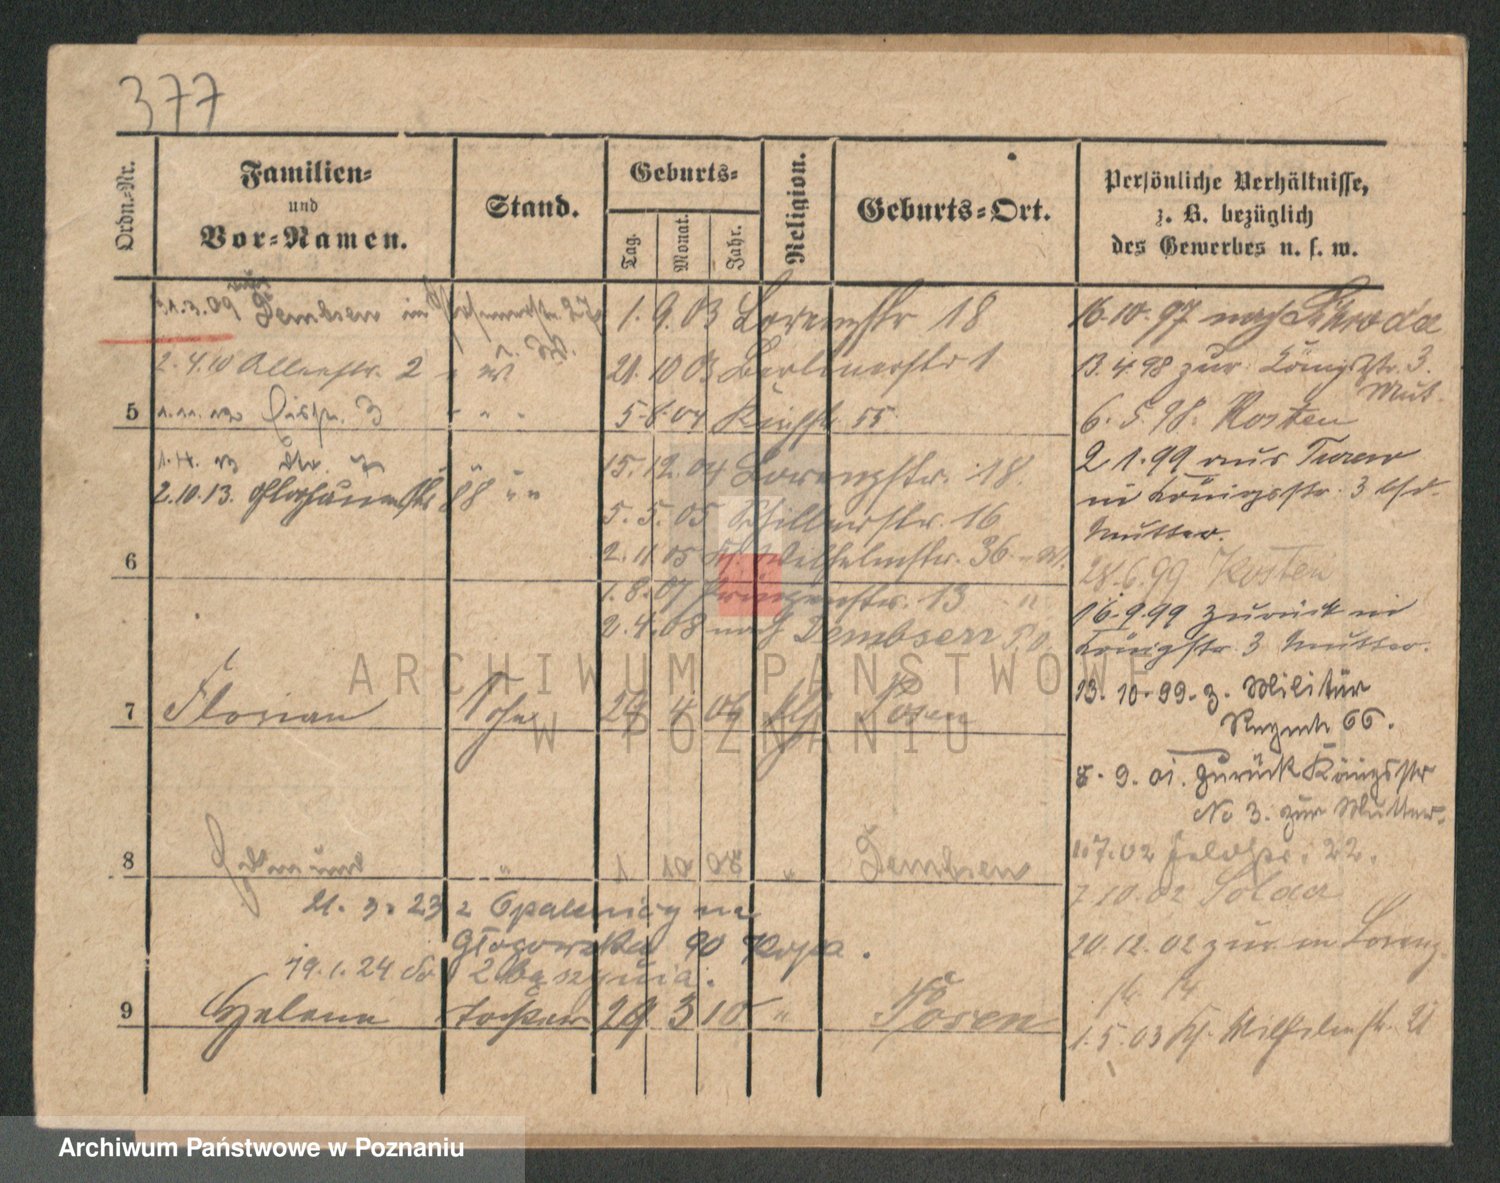 377
Ordn.-Nr.
Familien-
und
Vor-Namen.
Stand.
Geburts-
Tag.
Monat.
Jahr.
Religion.
Geburts-Ort.
Persönliche Verhältnisse,
z. B. bezüglich
des Gewerbes u. s. w.
31.3.09 Dembsen in
1. 9. 03 Lorenzstr 18
16.10.97 nach Schroda
2.4.10 Allerstr. 2
21. 10 03 Berlinerstr 1
13.4.98 zur Königstr. 3.
Mut.
5
1.11.12 3
5. 6. 04 Kirchstr 55
6. 5. 98. Kosten
2 1.99 aus Turew
15. 12. 04 Lorenzstr. 18.
in Königsstr. 3 bei d.
2.10.13.
88
5. 5. 05 Schillerstr. 16
Mutter.
6
2. 11 05 Kl. Wilhelmstr. 36
28.6.99 Kosten
1. 8. 07 Prinzenstr. 13
16.9.99 zurück in
2. 4. 08 nach Dembsen
Königstr. 3 Mutter.
ARCHIWUM PAŃSTWOWE
W POZNANIU
13. 10. 99. z. Militär
Regmt 66.
7
Florian
Sohn
29 4 04
Posen
8. 9. 01. zurück Königsstr
No 3. zur Mutter.
8
Edmund
"
1 10 08
"
Dembsen
1.7.02 Feldstr. 22.
21. 3. 23 z Opalenicy na
7.10.02 Solacz
Głogowska 90
20.12.02 zur in Lorenz-
str 14
19.1.24 do Zbąszynia.
9
Helena
Tochter
29 3 10
"
Posen
1. 5. 03 Kl. Wilhelmstr.
Archiwum Państwowe w Poznaniu